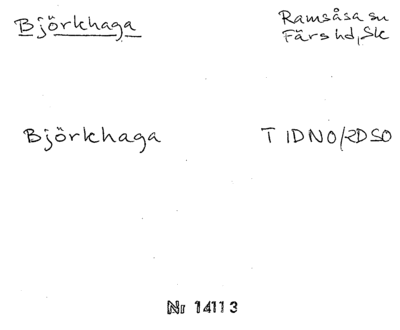 Björkhaga
Ramsåsa sn
Färs hd, Sk
Björkhaga
T 1DNO/2DSO
Nr 14113